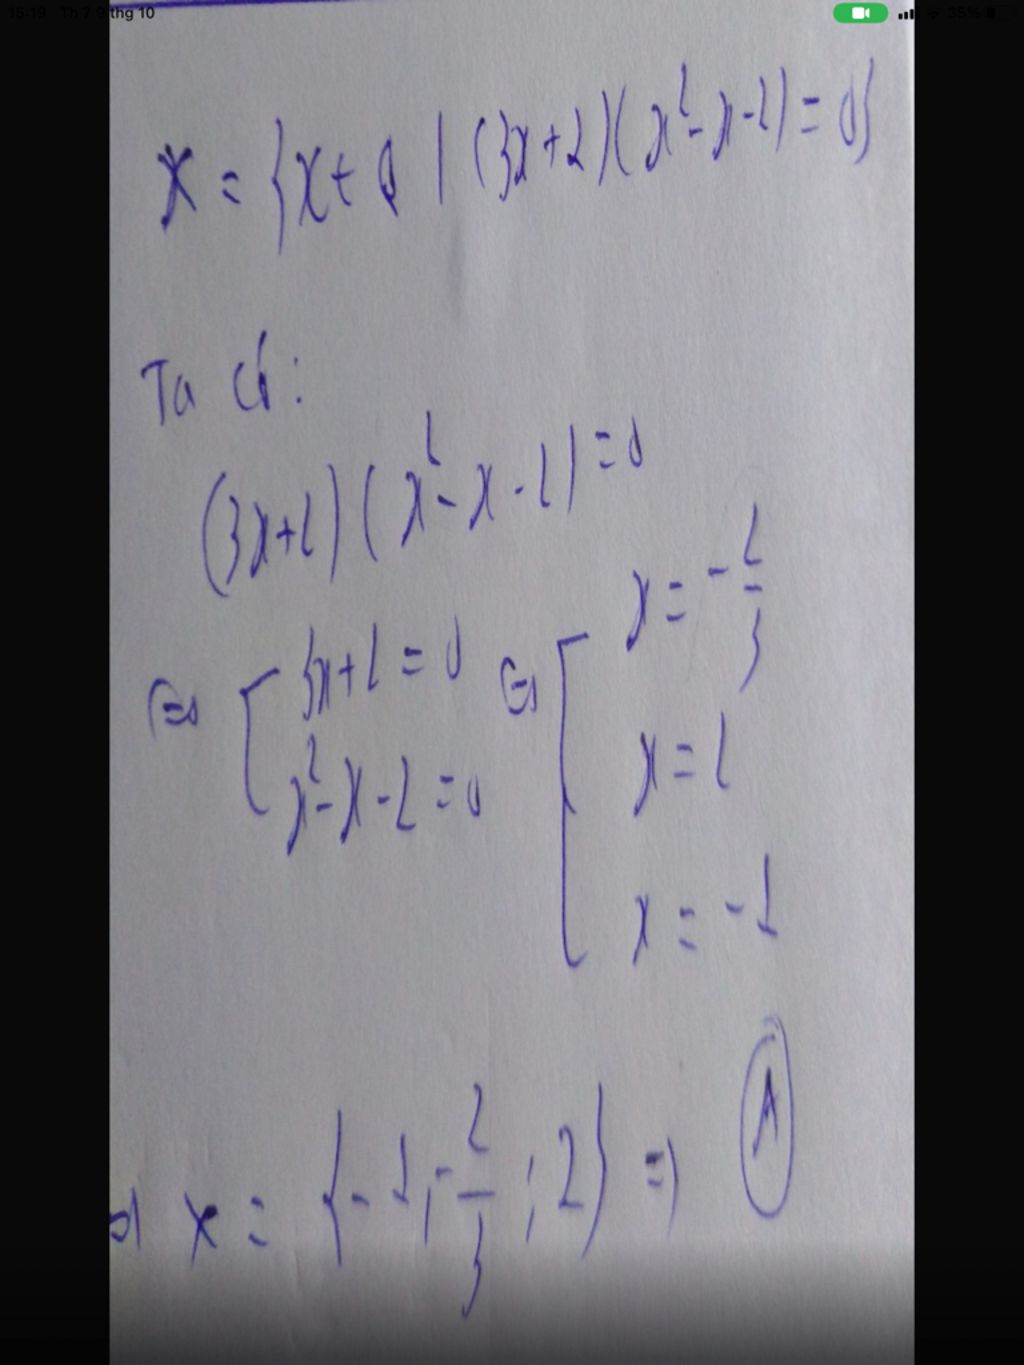 15:19 Th 7 9 thg 10 35%
X = {x ∈ Q | (3x+2)(x²-x-2) = 0}
Ta có:
(3x+2)(x²-x-2) = 0
⇔ [ 3x+2 = 0 ⇔ [ x = -2/3
x²-x-2 = 0 x = 2
x = -1
⇒ X = {-1; -2/3; 2} ⇒ A